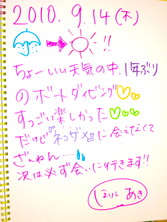 2010. 9.14(木)
!!
ちょーいい天気の中、1年ぶり
のボートダイビング
すっごい楽しかった
だけど"ネコザメ"に会えなくて
ざんねん…
次は必ず会いに行きます!!
あき